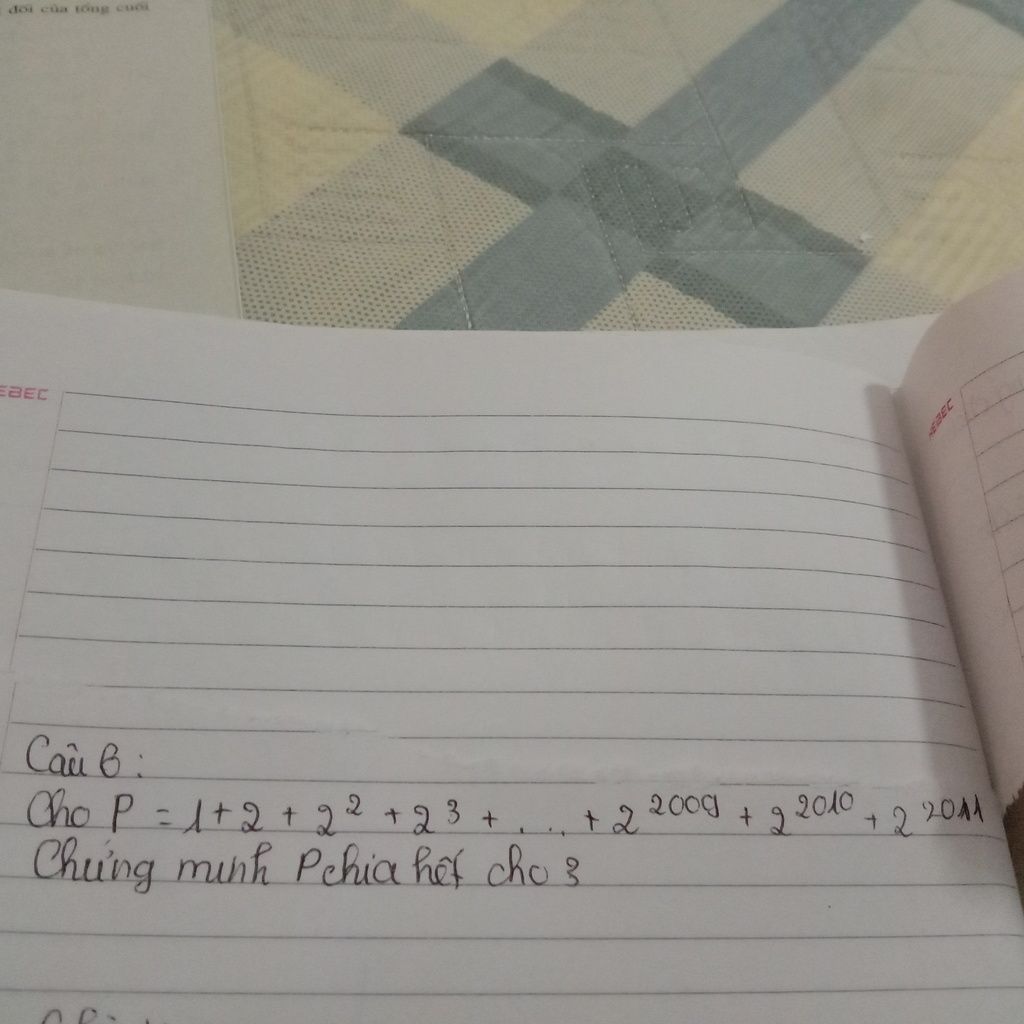 đối của tổng cuối
EBEC
Câu 6 :
Cho P = 1 + 2 + 2² + 2³ + .... + 2²⁰⁰⁹ + 2²⁰¹⁰ + 2²⁰¹¹
Chứng minh P chia hết cho 3